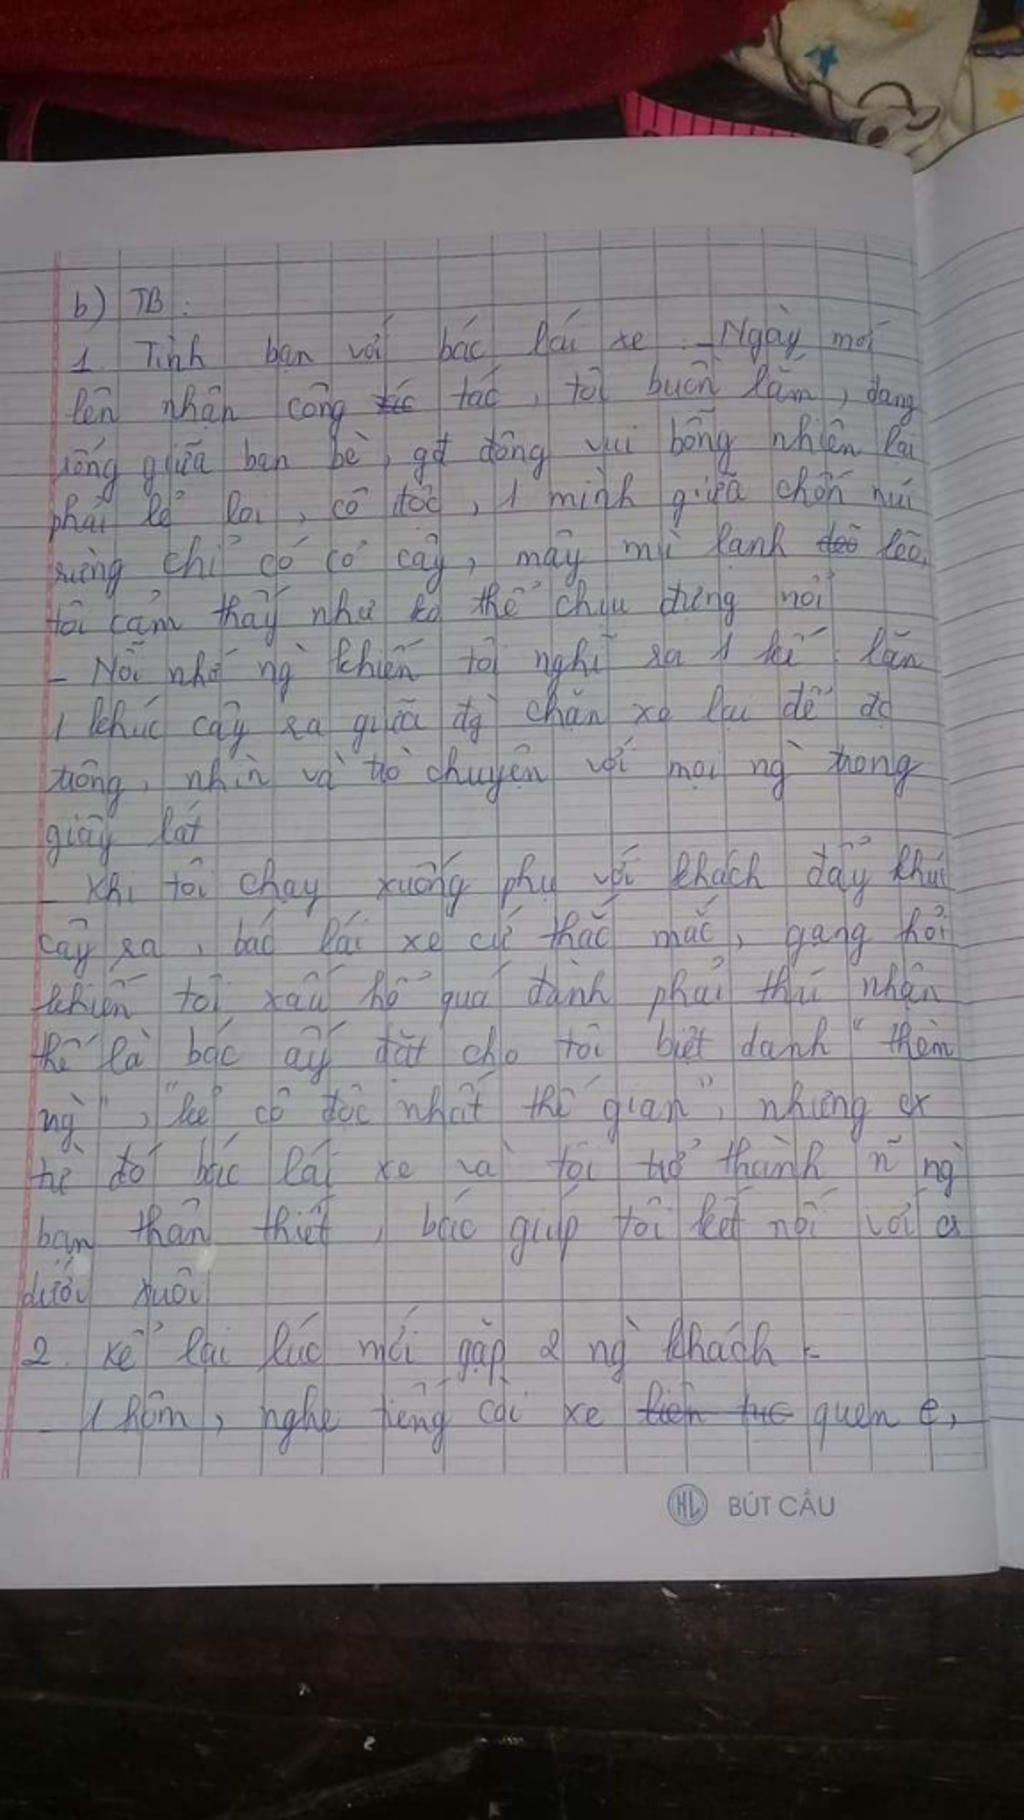 b) TB :
1. Tình bạn với bác lái xe - Ngày mới
lên nhận công tác, tôi buồn lắm, đang
sống giữa bạn bè, gđ đông vui bỗng nhiên lại
phải lẻ loi, cô độc, 1 mình giữa chốn núi
rừng chỉ có cỏ cây, mây mù lạnh lẽo,
tôi cảm thấy như ko thể chịu đựng nổi
- Nỗi nhớ ng` khiến tôi nghĩ ra 1 kế : lăn
1 khúc cây ra giữa đg` chặn xe lại để đc
trông, nhìn và trò chuyện với mọi ng` trong
giây lát
- Khi tôi chạy xuống phụ với khách đẩy khúc
cây ra, bác lái xe cứ thắc mắc, gạng hỏi
khiến tôi xấu hổ quá đành phải thú nhận
thế là bác ấy đặt cho tôi biệt danh " thèm
ng` ", "kẻ cô độc nhất thế gian", nhưng cx
từ đó bác lái xe và tôi trở thành n~ ng`
bạn thân thiết, bác giúp tôi kết nối với cs
dưới xuôi
2. Kể lại lúc mới gặp 2 ng` khách -
- 1 hôm, nghe tiếng còi xe quen e,
HL BÚT CẦU